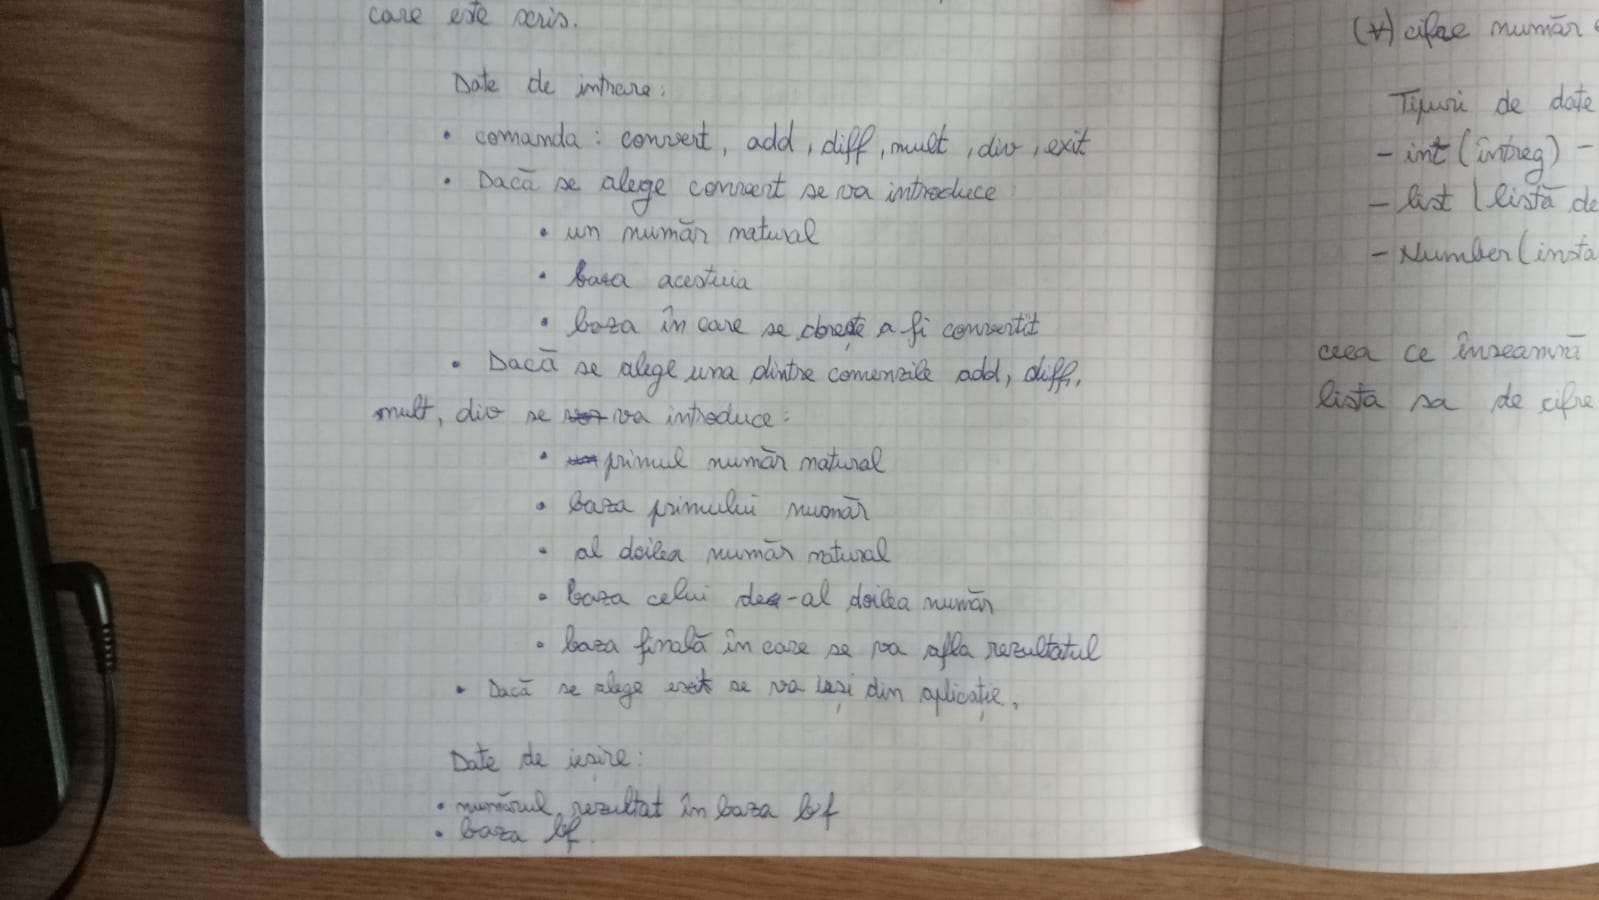 care este scris.
Date de intrare:
• comanda: convert, add, diff, mult, div, exit
• Dacă se alege convert se va introduce:
• un număr natural
• baza acestuia
• baza în care se dorește a fi convertit
• Dacă se alege una dintre comenzile add, diff,
mult, div se va introduce:
• primul număr natural
• baza primului număr
• al doilea număr natural
• baza celui de-al doilea număr
• baza finală în care se va afla rezultatul
• Dacă se alege exit se va ieși din aplicație.
Date de ieșire:
• numărul rezultat în baza bf
• baza bf.
(∀) cifre număr
Tipuri de date
- int (întreg) -
- list (listă de
- Number (insta
ceea ce înseamnă
lista sa de cifre